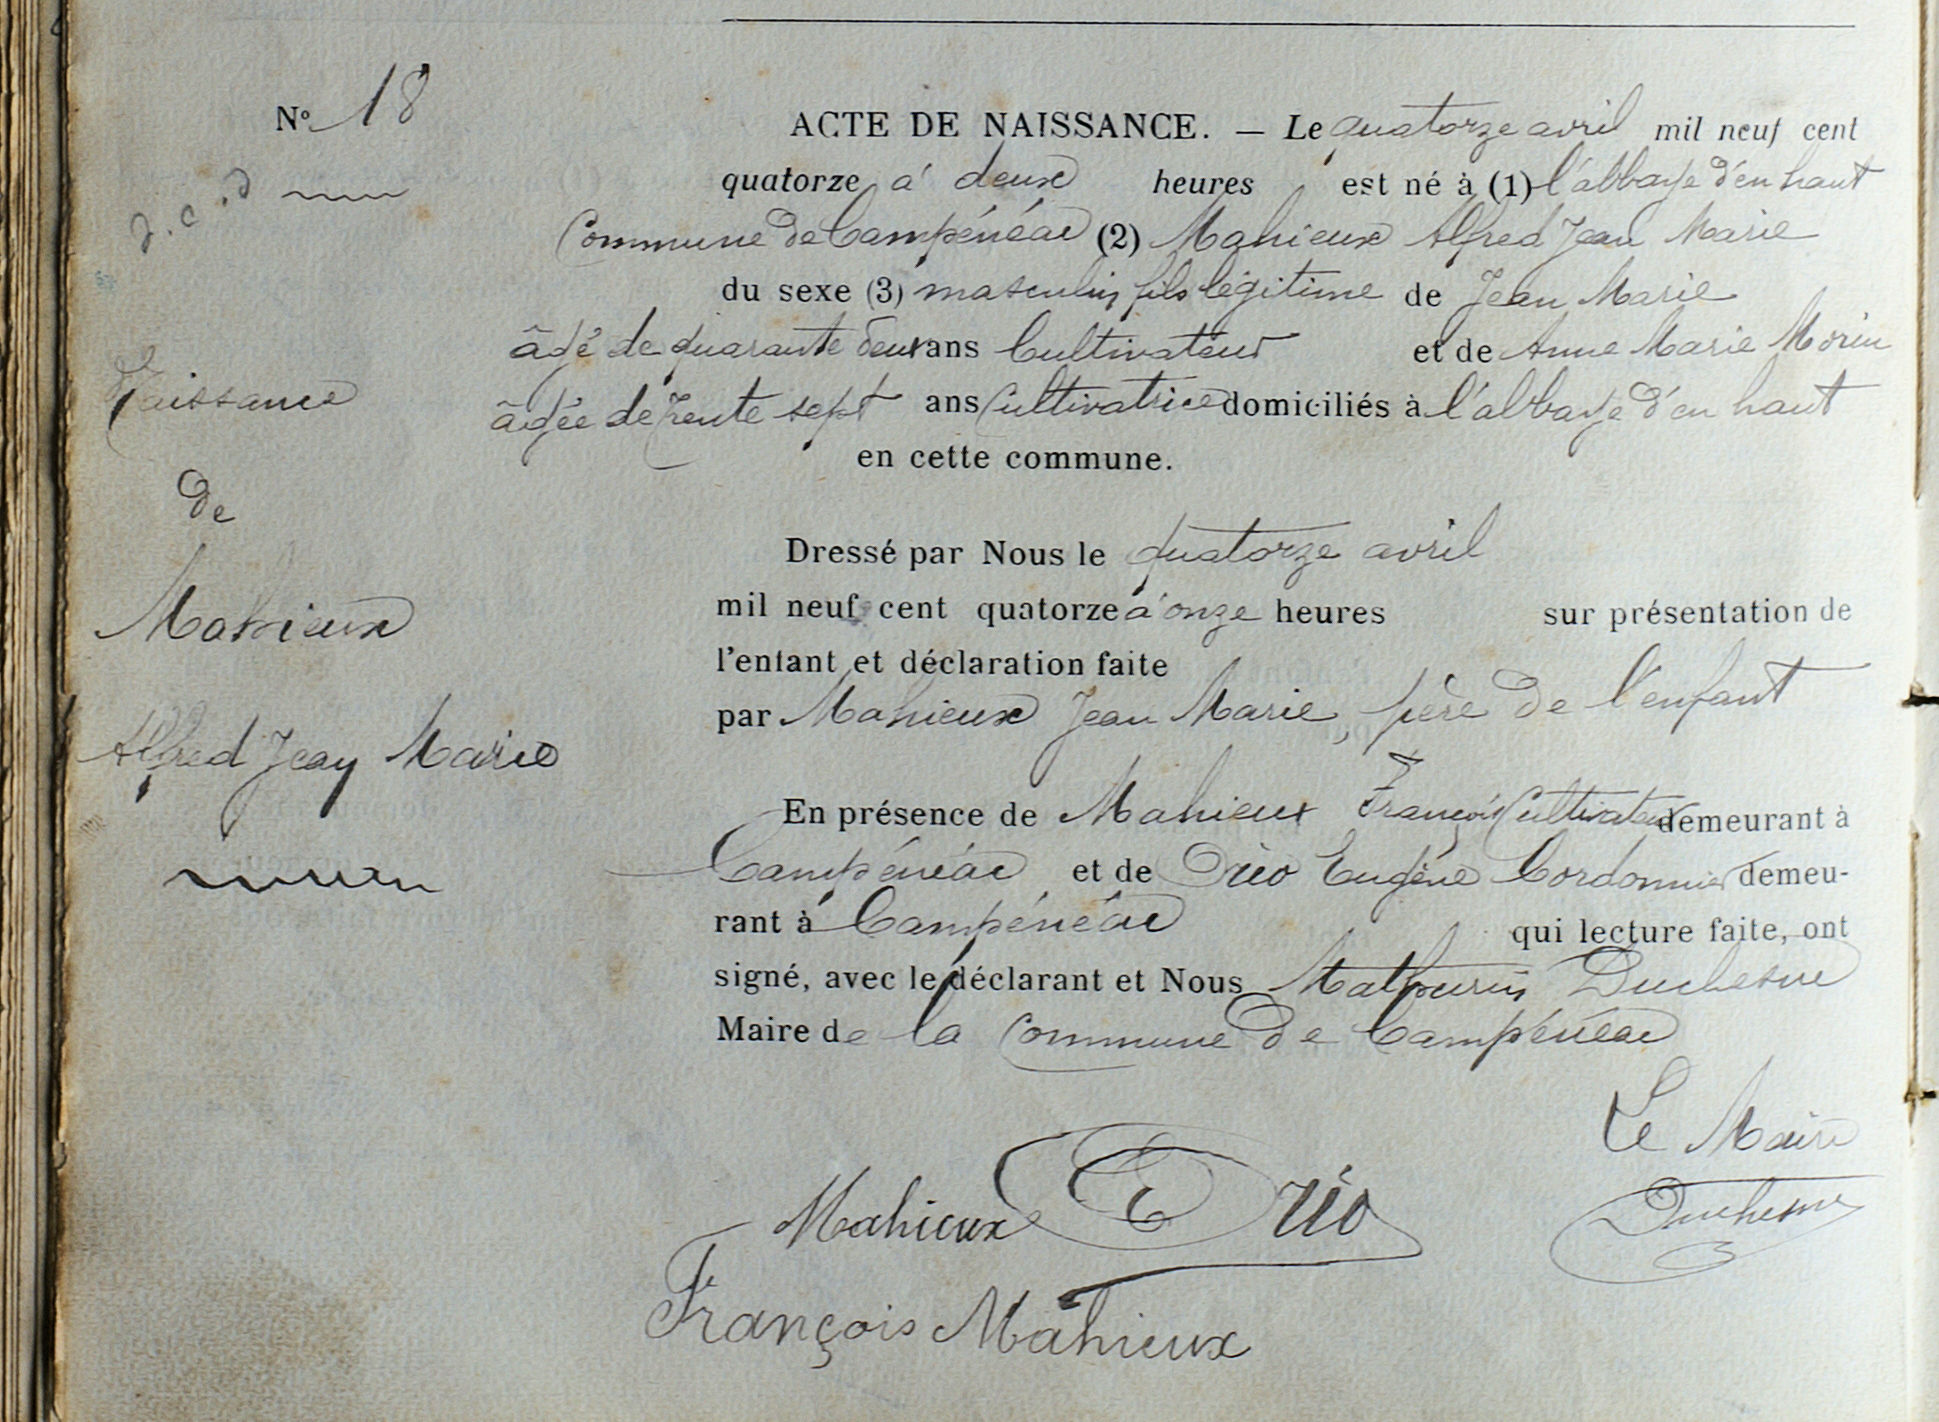 N° 18
ACTE DE NAISSANCE. — Le quatorze avril mil neuf cent
quatorze à deux heures est né à (1) l'abbaye d'en haut
Commune de Campénéac (2) Mahieux Alfred Jean Marie
du sexe (3) masculin fils légitime de Jean Marie
âgé de quarante deux ans Cultivateur et de Anne Marie Morin
âgée de trente sept ans Cultivatrice domiciliés à l'abbaye d'en haut
en cette commune.
Naissance
de
Mahieux
Alfred Jean Marie
Dressé par Nous le quatorze avril
mil neuf cent quatorze à onze heures sur présentation de
l'enfant et déclaration faite
par Mahieux Jean Marie, père de l'enfant
En présence de Mahieux François Cultivateur demeurant à
Campénéac et de Orio Eugène Cordonnier demeu-
rant à Campénéac qui lecture faite, ont
signé, avec le déclarant et Nous Mathurin Duchesne
Maire de la Commune de Campénéac
Le Maire
Mahieux E Orio Duchesne
François Mahieux